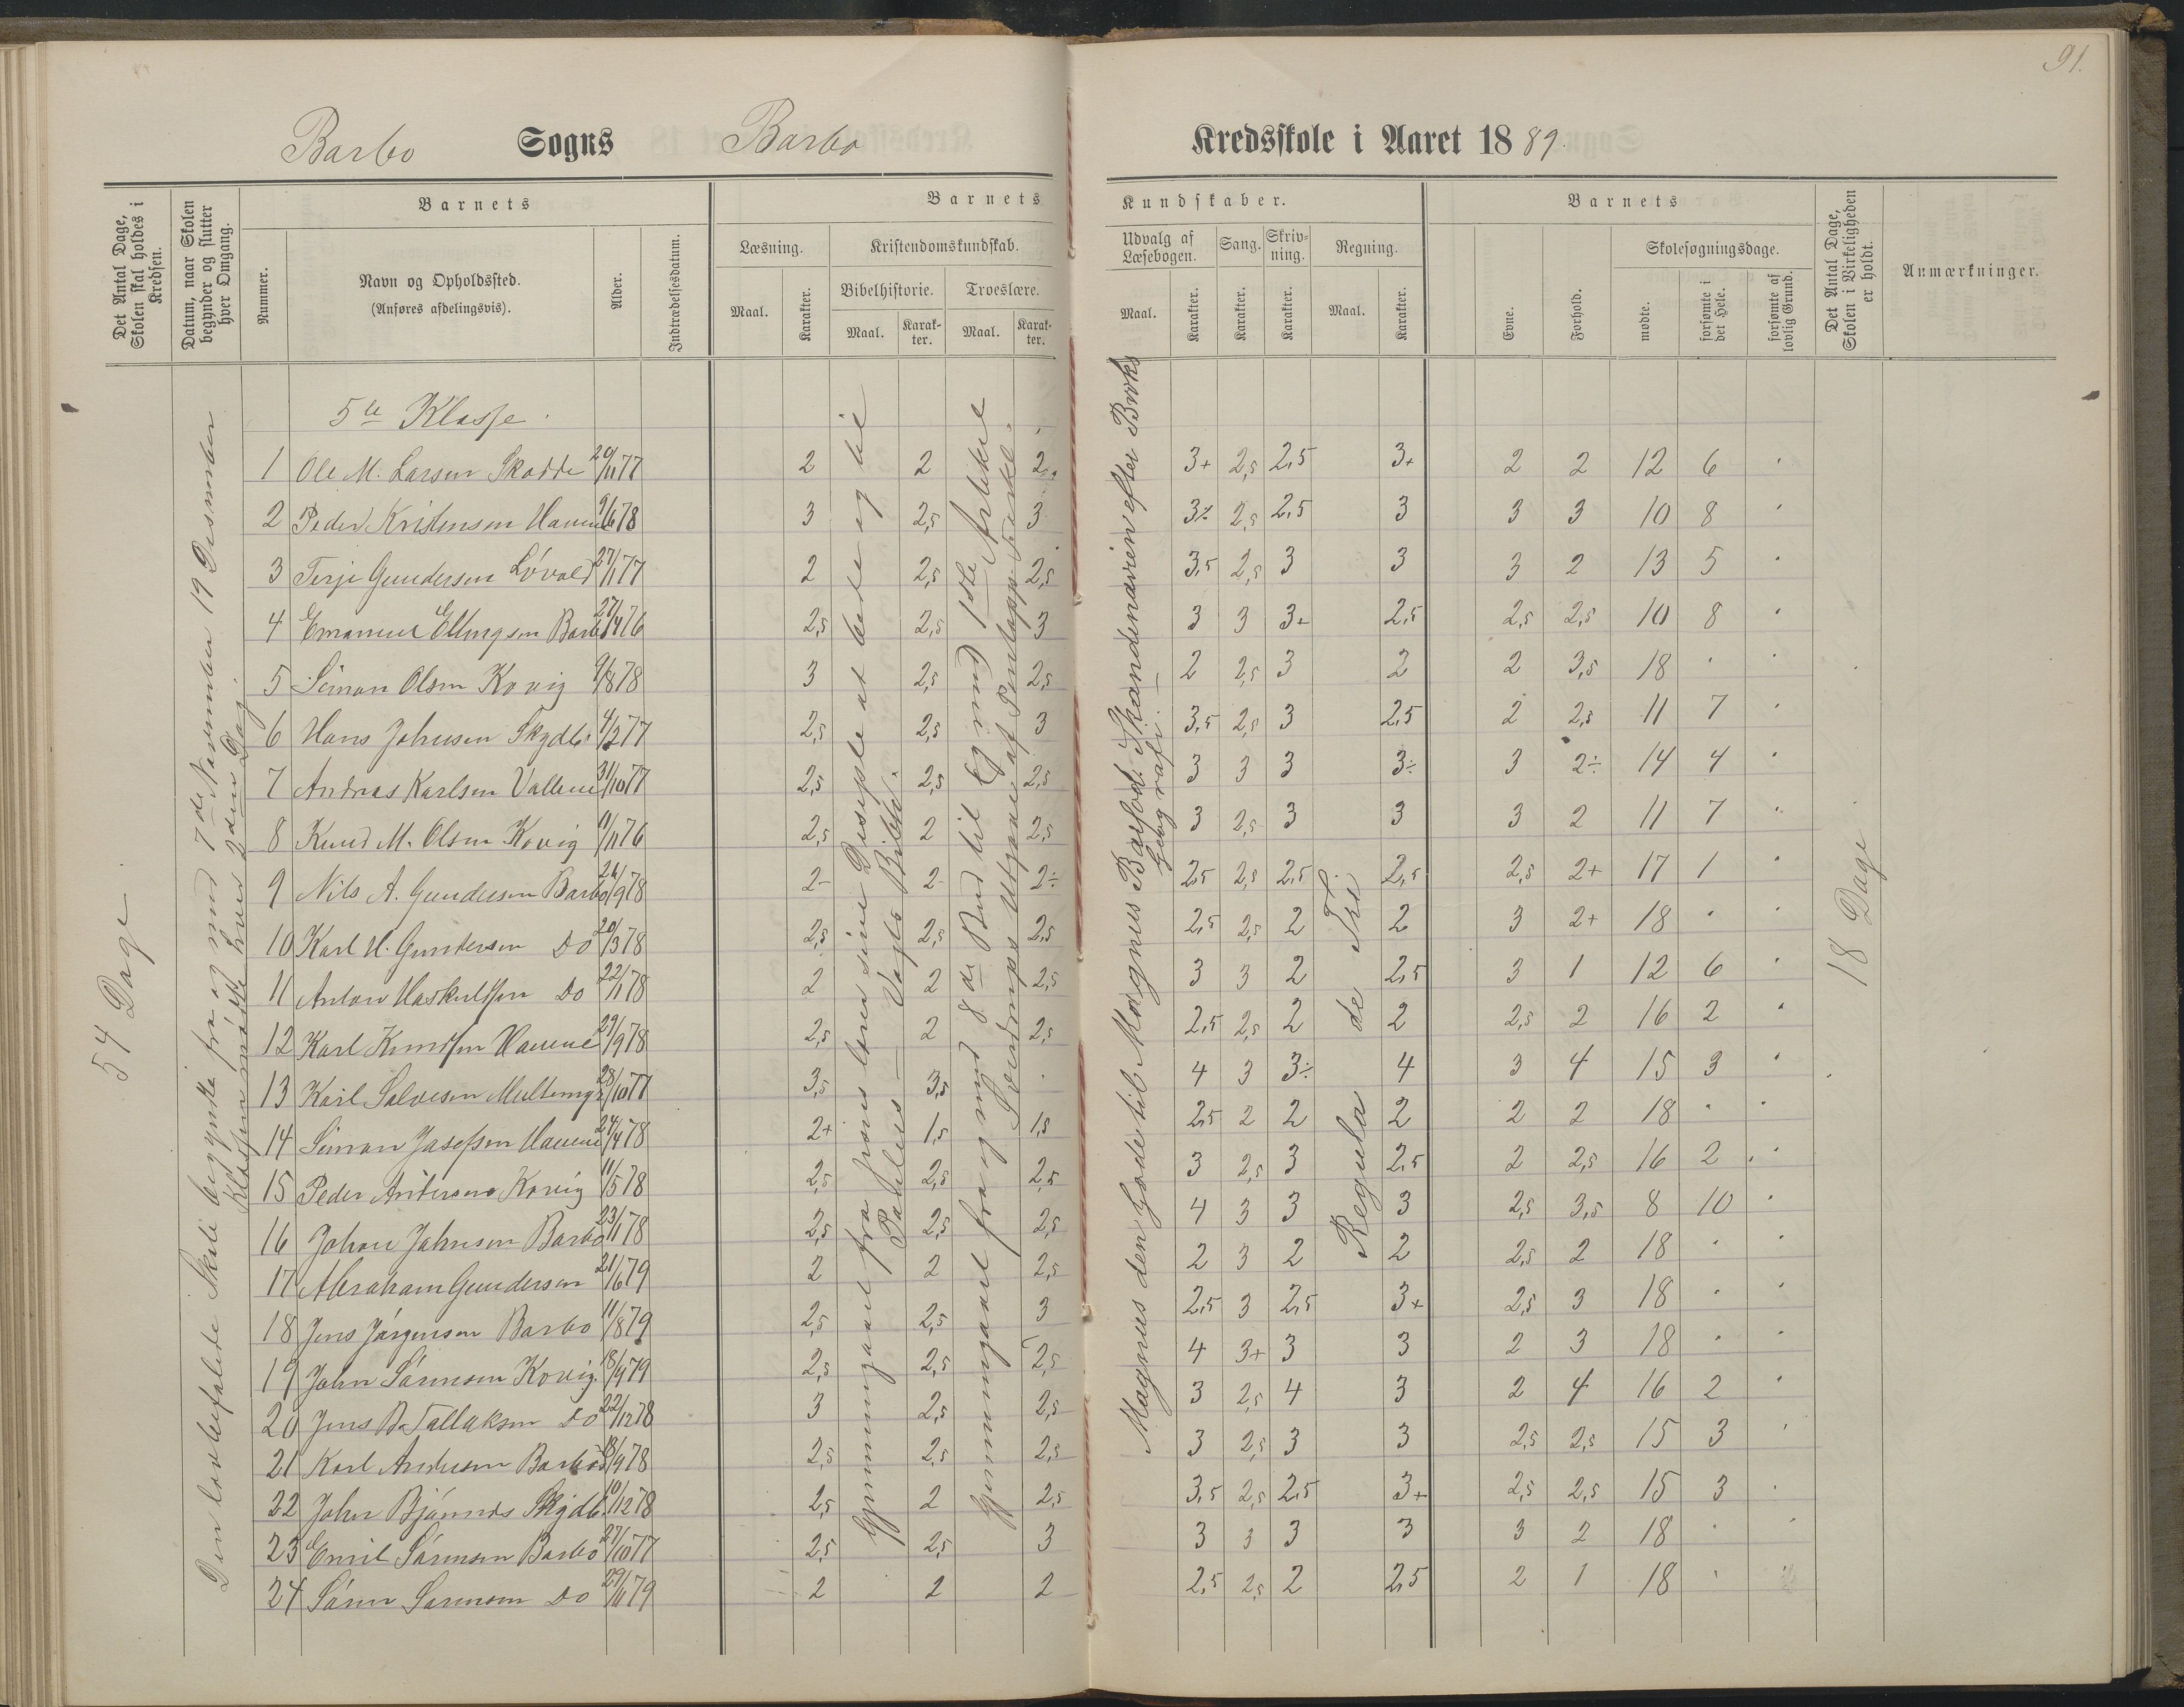 91.
Barbo Sogns Barbo Kredsskole i Aaret 1889.
Det Antal Dage, Skolen skal holdes i Kredsen.
Datum, naar Skolen begynder og slutter hver Omgang.
Barnets
Nummer.
Navn og Opholdssted.
(Anføres afdelingsvis).
Alder.
Indtrædelsesdatum.
Barnets Kundskaber.
Læsning.
Maal.
Karakter.
Kristendomskundskab.
Bibelhistorie.
Maal.
Karakter.
Troeslære.
Maal.
Karakter.
Udvalg af Læsebogen.
Maal.
Karakter.
Sang.
Karakter.
Skrivning.
Karakter.
Regning.
Maal.
Karakter.
Barnets
Evne.
Forhold.
Skolesøgningsdage.
mødte.
forsømte i det Hele.
forsømte af lovlig Grund.
Det Antal Dage, Skolen i Virkeligheden er holdt.
Anmærkninger.
54 Dage
Den lovbefalede Skole begyndte fra og med 7de November 19 Desember
Klassen mødte hver 2den Dag.
5te Klasse.
1 Ole M. Larsen Skodde 29/11 77 2 2 2,5 3+ 2,5 2,5 3+ 2 2 12 6
2 Peder Kristensen Havene 9/6 78 3 2,5 3 3÷ 2,5 2,5 3 3 3 10 8
3 Terje Gundersen Løvold 27/11 77 2 2,5 2,5 3,5 2,5 3 3 3 2 13 5
4 Emanuel Ellingsen Barbo 27/4 76 2,5 2,5 3 3 3 3+ 2,5 2,5 2,5 10 8
5 Simon Olsen Kovig 9/8 78 3 2,5 2,5 2 2,5 3 2 2 3,5 18
6 Hans Johnsen Skydb. 4/2 77 2,5 2,5 3 3,5 2,5 3 2,5 2 2,5 11 7
7 Andreas Karlsen Vallene 31/10 77 2,5 2,5 2,5 3 3 3 3÷ 3 2÷ 14 4
8 Knud M. Olsen Kovig 11/11 76 2,5 2 2,5 3 2,5 3 3 3 2 11 7
9 Nils A. Gundersen Barbo 24/9 78 2- 2- 2÷ 2,5 2,5 2,5 2,5 2,5 2+ 17 1
10 Karl H. Gundersen Do 20/3 78 2,5 2,5 2,5 2,5 2,5 2 2 3 2+ 18
11 Anton Haskuldsen Do 22/11 78 2 2 2,5 3 3 2 2,5 3 1 12 6
12 Karl Knudsen Havene 29/9 78 2,5 2 2,5 2,5 2,5 2 2 2,5 2 16 2
13 Karl Salvesen 28/10 77 3,5 3,5 4 3 3÷ 4 3 4 15 3
14 Simon Josefsen Havene 24/4 78 2+ 1,5 1,5 2,5 2 2 2 2 2 18
15 Peder Andersen Kovig 11/5 78 2,5 2,5 2,5 3 2,5 3 2,5 2 2,5 16 2
16 Johan Johnsen Barbo 23/11 78 2,5 2,5 2,5 4 3 3 3 2,5 3,5 8 10
17 Abraham Gundersen 21/6 79 2 2 2,5 2 3 2 2 2,5 2 18
18 Jens Jørgensen Barbo 11/8 79 2,5 2,5 3 2,5 3 2,5 3+ 2,5 3 18
19 John Sørensen Kovig. 18/9 79 2,5 2,5 2,5 4 3+ 3 3 2 3 18
20 Jens B. Tallaksen Do 22/12 78 3 2,5 2,5 3 2,5 4 3 2 4 16 2
21 Karl Andersen Barbo 18/9 78 2,5 2,5 2,5 3 2,5 3 3 2,5 2,5 15 3
22 John Bjønnes Skydb. 10/12 78 2,5 2 2,5 3,5 2,5 2,5 3+ 2,5 2,5 15 3
23 Emil Sørensen Barbo 27/10 77 2,5 2,5 3 3 3 3 3 3 2 18
24 Søren Sørensen Do 29/11 79 2 2 2 2,5 2,5 2 2,5 2 1 18
Gjennemgaaet fra Jesus lærer sine Disciple at bede og til
Paulus — Vogts Bibelh.
Gjennemgaaet fra og med 8de Bud til og med 1ste Artikkel
Sverdrups Utgave af Pontopp. Forkl.
Magnus den Gode til Magnus Barfod. Skandinavien efter Broks
Geografi. —
Regula de Tri.
18 Dage